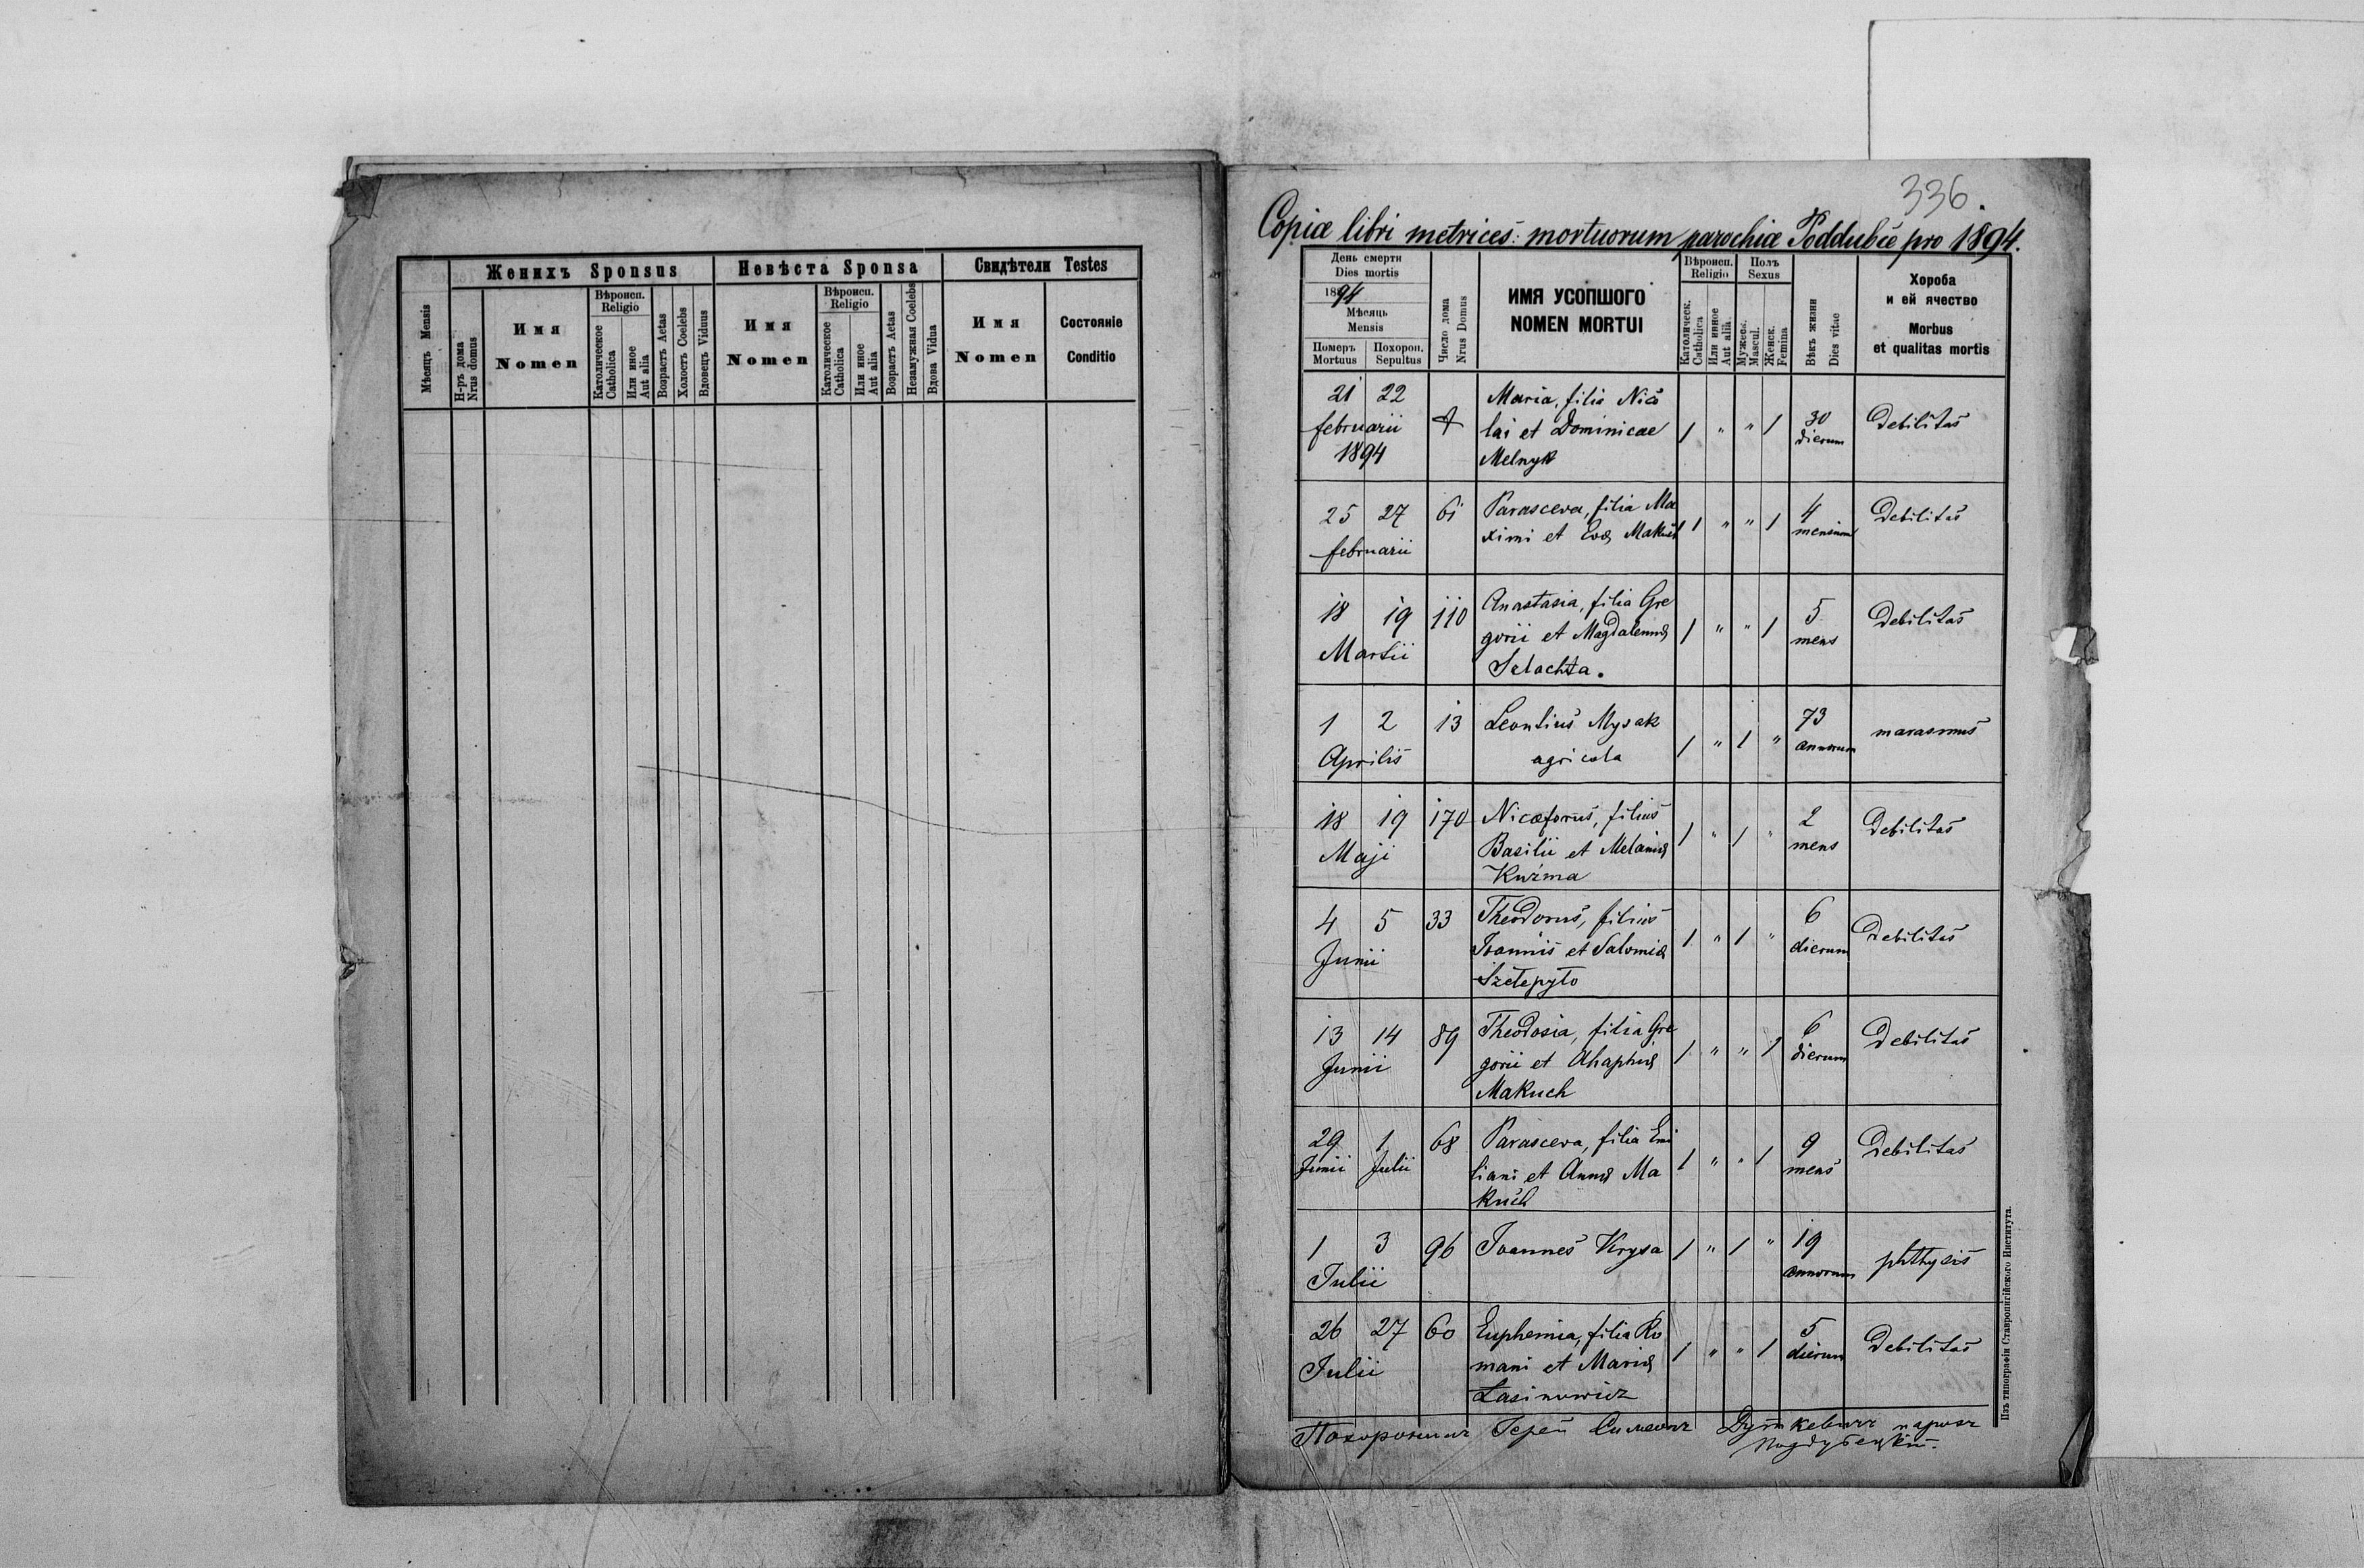 Женихъ Sponsus
Невѣста Sponsa
Свидѣтели Testes
Мѣсяцъ Mensis
Н-ръ дома
Nrus domus
Имя
Nomen
Вѣроисп.
Religio
Католическое
Catholica
Или инное
Aut alia
Возрастъ Aetas
Холостъ Coelebs
Вдовецъ Viduus
Имя
Nomen
Вѣроисп.
Religio
Католическое
Catholica
Или иное
Aut alia
Возрастъ Aetas
Незамужная Coelebs
Вдова Vidua
Имя
Nomen
Состояніе
Conditio
336.
Copia libri metrices: mortuorum parochiæ Poddubce pro 1894.
День смерти
Dies mortis
1894
Мѣсяць
Mensis
Померъ
Mortuus
Похорон.
Sepultus
Число дома
Nrus Domus
ИМЯ УСОПШОГО
NOMEN MORTUI
Вѣроисп.
Religio
Полъ
Sexus
Католическ.
Catholica
Или инное
Aut alia
Мужеск.
Mascul.
Женск.
Femina
Вѣкъ жизни
Dies vitae
Хороба
и ей ячество
Morbus
et qualitas mortis
21 22
februarii
1894
Maria, filia Nico
lai et Dominicae
Melnyk
1 " " 1
30
dierum
Debilitas
25 27
februarii
61
Parasceva, filia Ma
ximi et Evæ Makuch
1 " " 1
4
mensium
Debilitas
18 19
Martii
110
Anastasia, filia Gre
gorii et Magdalenæ
Selachta.
1 " " 1
5
mens
Debilitas
1 2
Aprilis
13
Leontius Mysak
agricola
1 " 1 "
73
annorum
marasmus
18 19
Maji
170
Nicæforus, filius
Basilii et Melaniæ
Kuzma
1 " 1 "
2
mens
Debilitas
4 5
Junii
33
Theodorus, filius
Joannis et Salomiæ
Szełepyło
1 " 1 "
6
dierum
Debilitas
13 14
Junii
89
Theodosia, filia Gre
gorii et Ahaphiæ
Makuch
1 " " 1
6
dierum
Debilitas
29 1
Junii Julii
68
Parasceva, filia Emi
liani et Annæ Ma
kuch
1 " " 1
9
mens
Debilitas
1 3
Julii
96
Joannes Krysa
1 " 1 "
19
annorum
phthysis
26 27
Julii
60
Euphemia, filia Ro
mani et Mariæ
Łasinowicz
1 " " 1
5
dierum
Debilitas
Похоронилъ Іерей Симеонъ Дуткевичъ парохъ
Поддубецкій.
Изъ типографіи Ставропигійского Института.